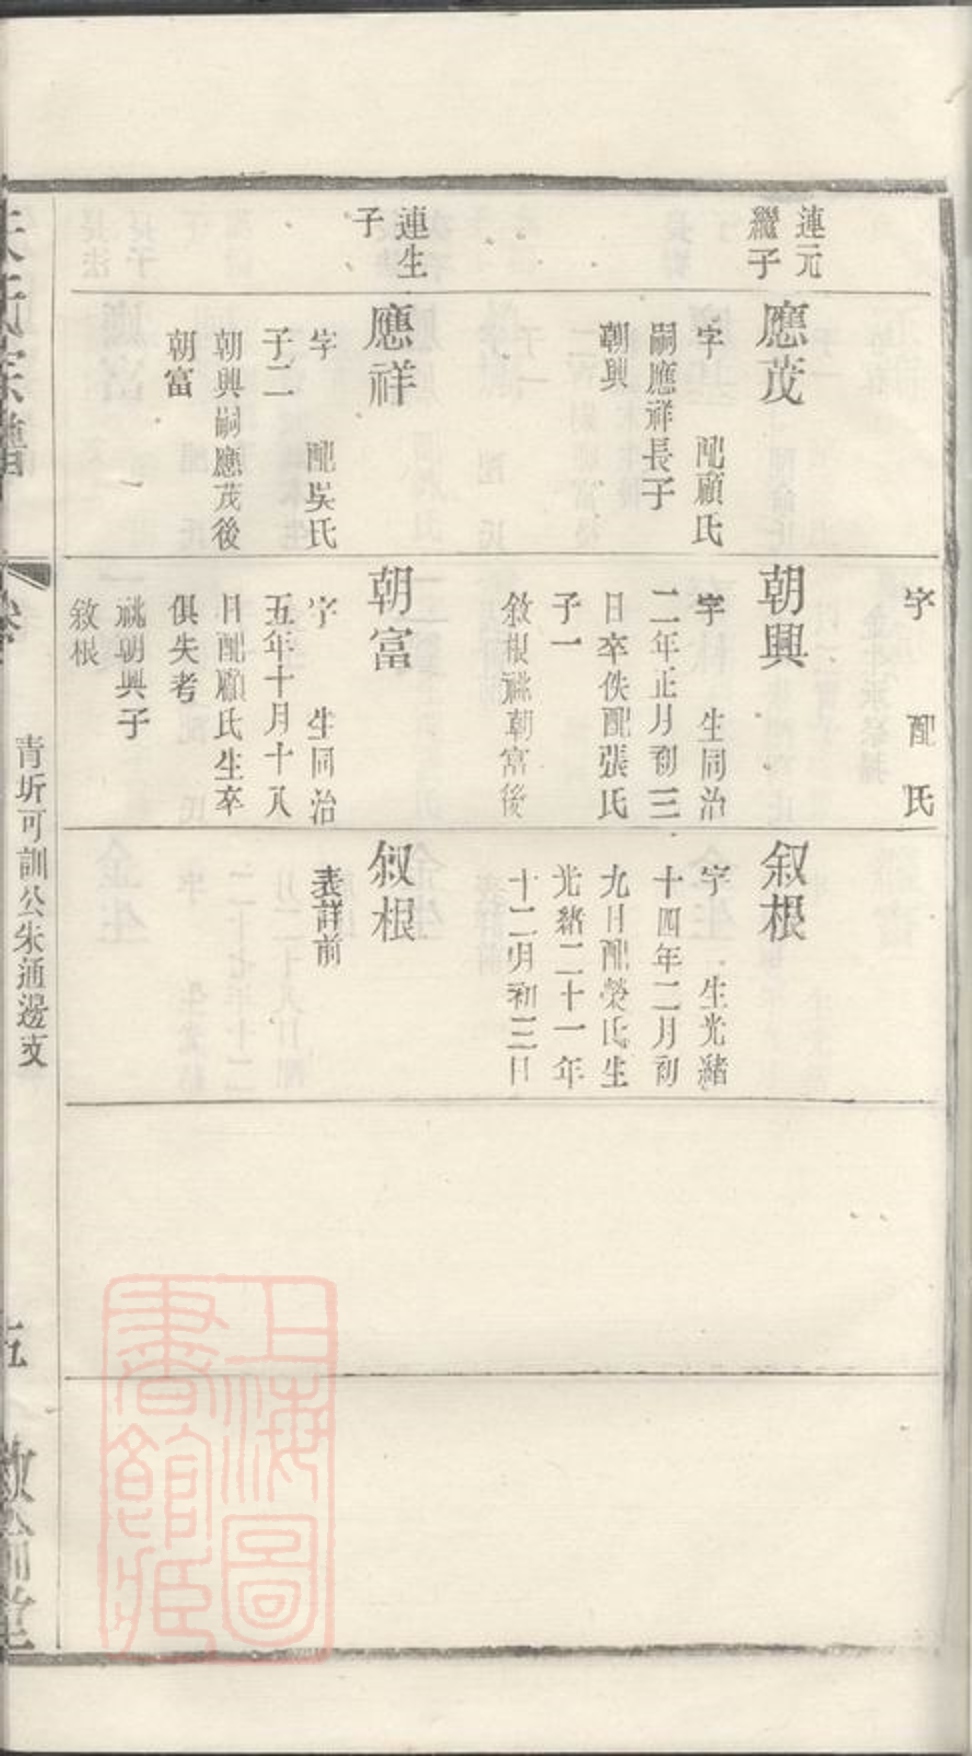 連元
繼子
連生
子
應茂
字 配顧氏
嗣應祥長子
朝興
應祥
字 配吳氏
子二
朝興嗣應茂後
朝富
字 配 氏
朝興
字 生同治
二年正月初三
日卒佚配張氏
子一
敘根祧朝富後
朝富
字 生同治
五年十月十八
日配顧氏生卒
俱失考
祧朝興子
敘根
叙根
字 生光緒
十四年二月初
九日配榮氏生
光緒二十一年
十二月初三日
叙根
表詳前
青圻可訓公朱通邊支
五
上海圖
書館藏